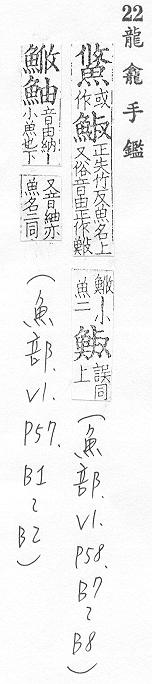 22 龍龕手鑑
或作 正失竹反魚名上又俗音由正作 小魚二 誤同上 (魚部. V1. P58. B7~B8)
鮋 音由納—小魚也下又音紬亦魚名二同 (魚部. V1. P57. B1~B2)